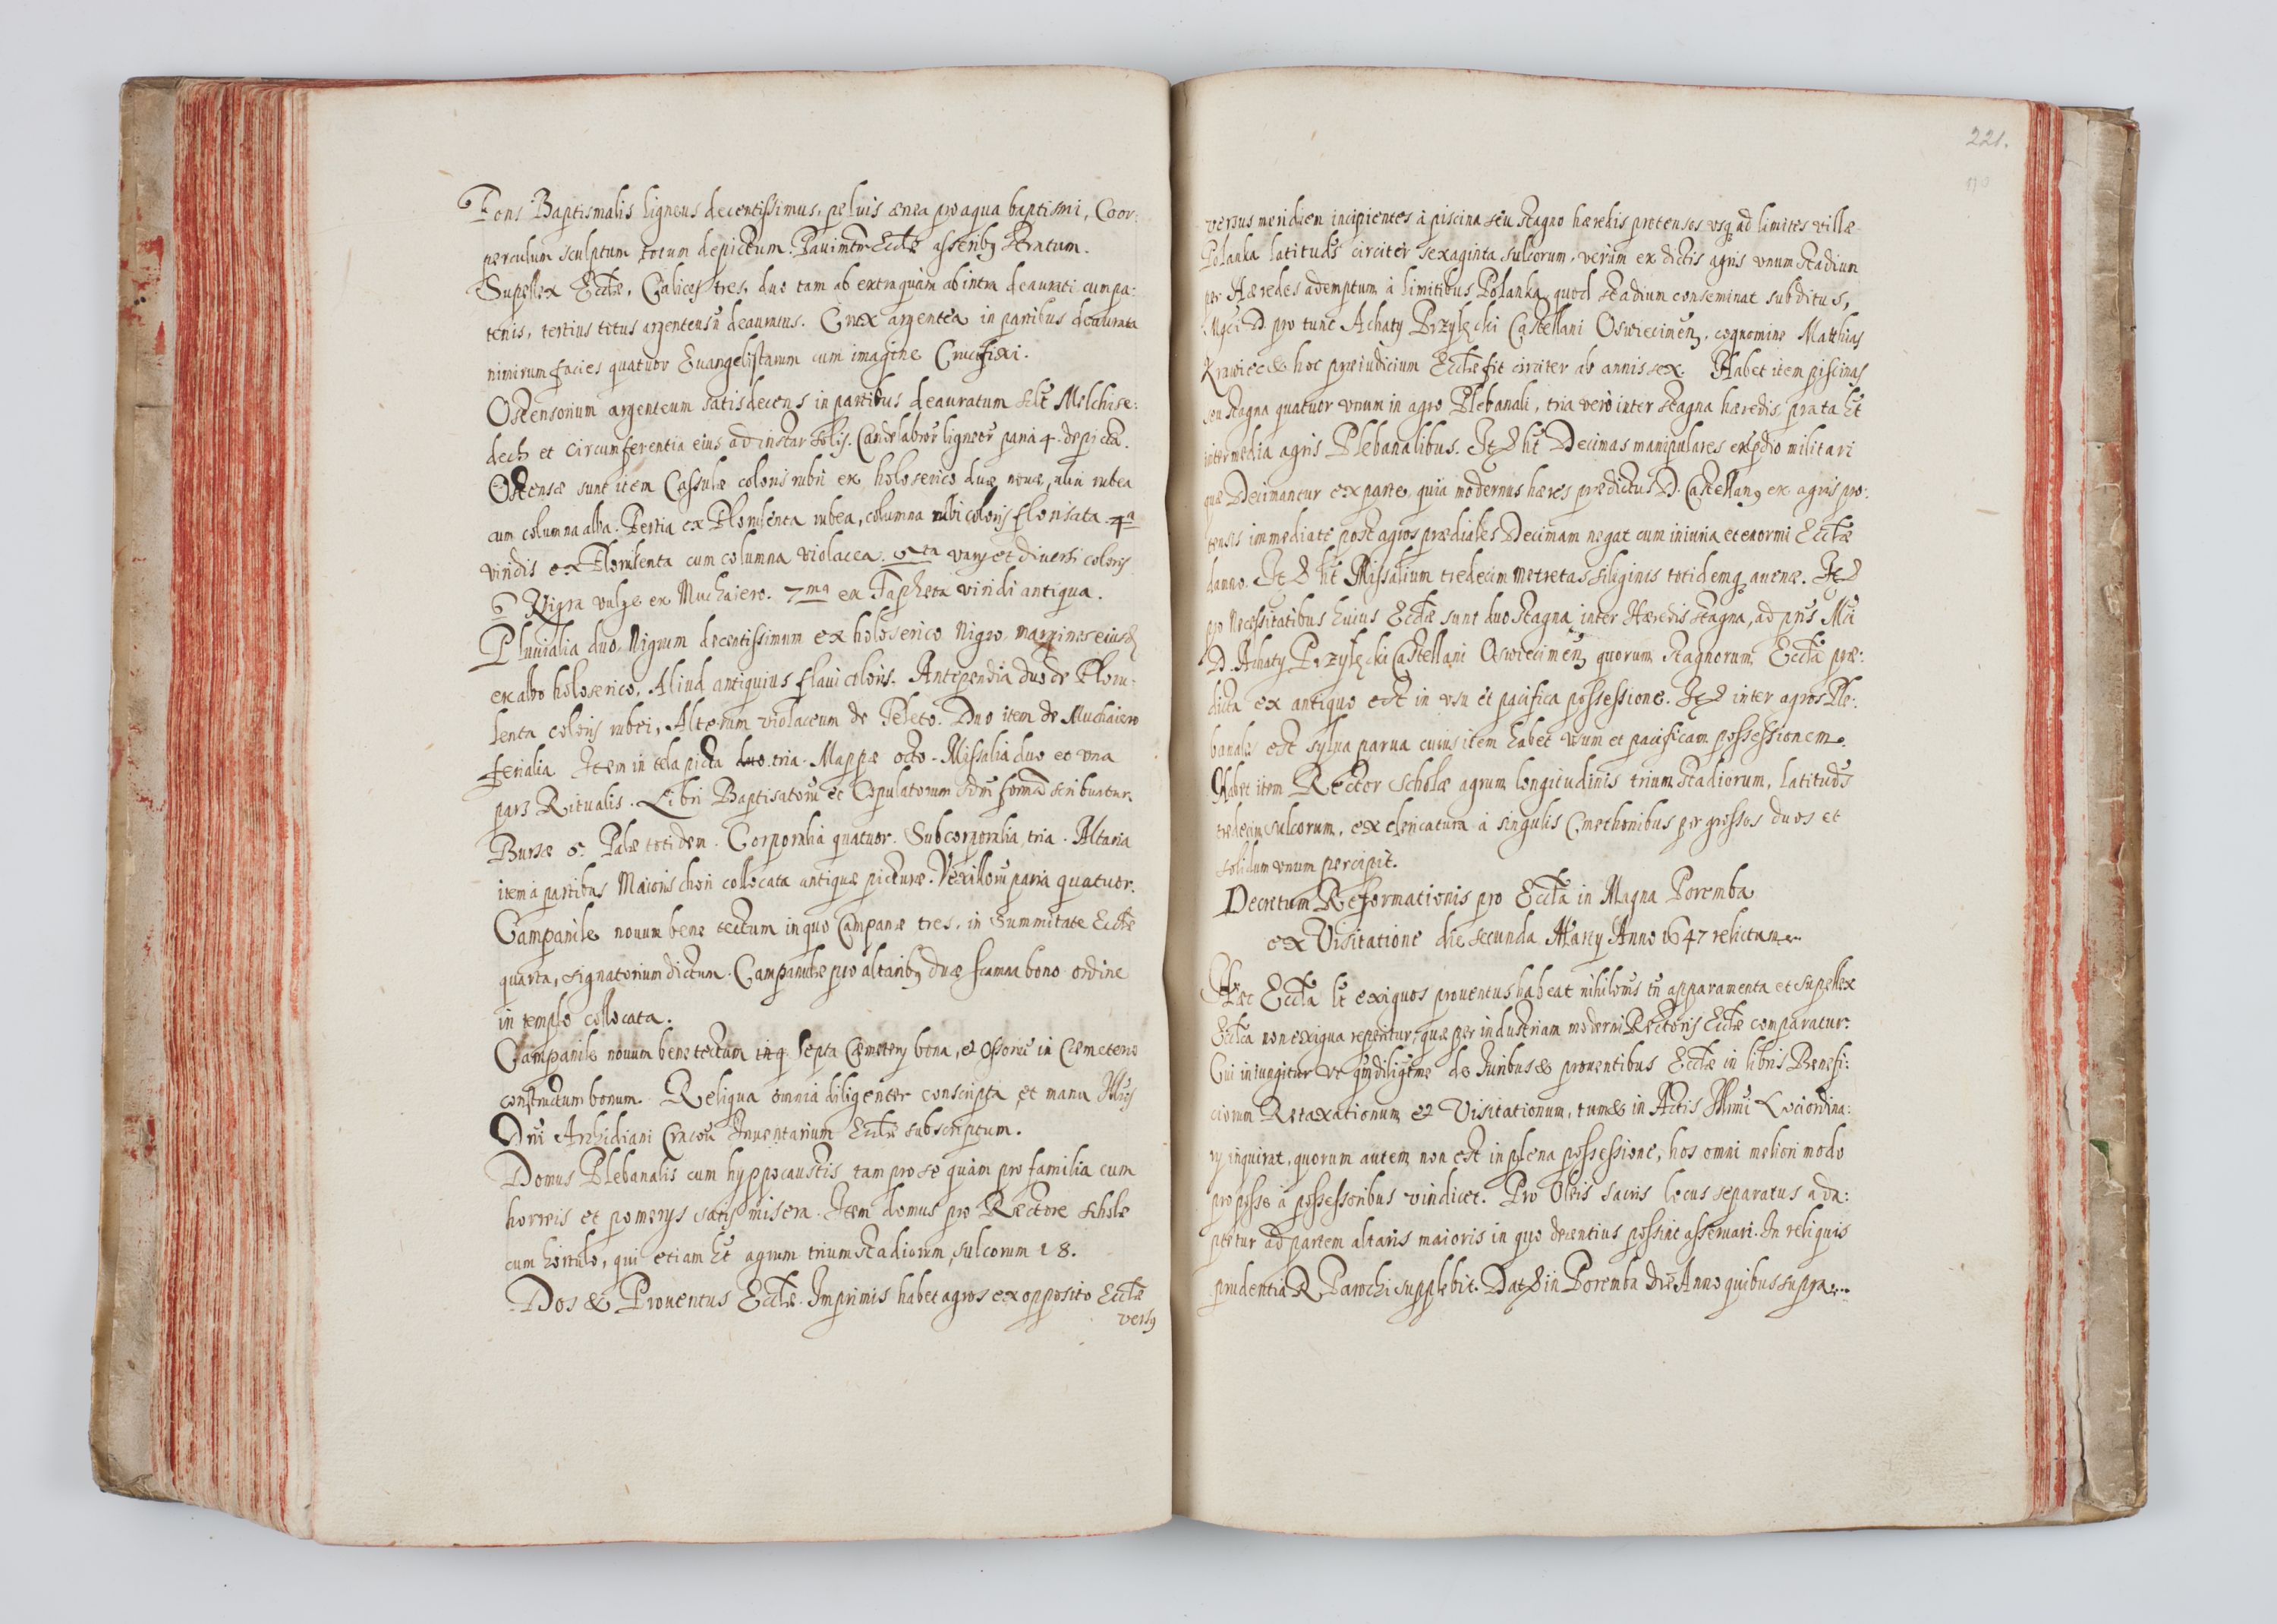 Fons Baptismalis ligneus decentissimus, peluis ænea pro aqua baptismi, Coor:
perculum sculptum totum depictum. Pauimtm Ecclæ asserib9 stratum.
Supellex Ecclæ, Calices tres, duo tam ab extra quàm ab intra deaurati cum pa:
tenis, tertius titus argenteus deauratus. Crux argentea in partibus deaurata
nimirum facies quatuor Euangelistarum cum imagine Crucifixi.
Ostensorium argenteum satis decens in partibus deauratum Melchise:
dech et circumferentia eius ad instar Solis. Candelabror ligneor paria 4. depicta.
Ostensæ sunt item Casulæ coloris rubri ex holoserico duæ nouæ, alia rubea
cum columna alba. Tertia ex Florulenta rubea, columna coloris florisata. 4a
viridis ex Florulenta cum columna violacea. 5ta varij et diuersi coloris
6 Nigra vulgo ex Muchaiero. 7ma ex Tapheta viridi antiqua.
Pluuialia duo, Nigrum decentissimum ex holoserico Nigro, margines eiusd
ex albo holoserico, Aliud antiquius flaui coloris. Antipendia duo de Floru:
lenta coloris rubei, Alterum violaceum de Teleto. Duo item de Muchaiero
ferialia Item in tela picta duo tria. Mappæ octo. Missalia duo et vna
pars Ritualis. Libri Baptisatorū et Copulatorum formā scribuntur.
Bursæ 5. Palæ totidem. Corporalia quatuor. Subcorporalia tria. Altaria
item à partibus Maioris chori collocata antiquæ picturæ. Vexillorū paria quatuor.
Campanile nouum bene tectum in quo Campanæ tres, in Summitate Ecclæ
quarta, signatorium dictum. Campanulæ pro altarib9 duæ scamna bono ordine
in templo collocata.
Campanile nouum bene tectum in q Septa Cæmeterij bona, et Ossoriū in Cæmeterio
constructum bonum. Reliqua omnia diligenter conscripta et manu Illris
Dni Archidiani Cracou Inuentarium Ecclæ subscriptum.
Domus Plebanalis cum hyppocaustis tam pro se quàm pro familia cum
horreis et pomerijs satis misera. Item domus pro Rectore scholæ
cum hortulo, qui etiam ht agrum trium stadiorum, sulcorum 18.
Dos & Prouentus Ecclæ. Imprimis habet agros ex opposito Ecclæ
vers9
221.
versus meridiem incipientes à piscina seu stagno hæredis protensos vsq ad limites villæ
Polanka latituds circiter sexaginta sulcorum, verùm ex dictis agris vnum stadium
per Hæredes ademptum à limitibus Polanka, quod stadium conseminat subditus,
Mgci D. pro tunc Achatij Przyłęcki Castellani Oswiecimen, cognomine Matthias
Krawiec & hoc præiudicium Ecclæ fit circiter ab annis sex. Habet item piscinas
seu stagna quatuor vnum in agro Plebanali, tria verò inter stagna hæredis, prata ht
intermedia agris Plebanalibus. It d ht Decimas manipulares ex pdio militari
quæ Decimantur ex parte, quia modernus hæres prædictus D. Castellan9 ex agris pro:
tensis immediatè post agros prædiales Decimam negat cum iniuria et enormi Ecclæ
damno. It d ht Missalium tredecim metretas siliginis totidemq auenæ. It d
pro necessitatibus huius Ecclæ sunt duo stagna inter Hæredis stagna, ad pns Mci
D. Achatij Przyłęcki Castellani Oswiecimen quorum stagnorum Eccla præ:
dicta ex antiquo est in vsu et pacifica possessione. It d inter agros Ple:
banales est sylua parua cuius item habet vsum et pacificam possessionem.
Habet item Rector Scholæ agrum longitudinis trium stadiorum, latituds
tredecim sulcorum, ex clericatura à singulis Cmethonibus per grossos duos et
solidum vnum percipit.
Decretum Reformationis pro Eccla in Magna Poremba
ex Visitatione die secunda Martij Anno 1647 relictum.
Hæc Eccla lt exiguos prouentus habeat nihilomis tn apparamenta et supellex
Ecclca non exigua reperitur, quæ per industriam moderni Rectoris Ecclæ comparatur.
Cui iniungitur vt qm diligtme de Iuribus & prouentibus Ecclæ in libris Benefi:
ciorum Retaxationum et Visitationum, tum & in Actis Illmi Loci ordina:
rij inquirat, quorum autem non est in plena possessione, hos omni meliori modo
pro posse à possessoribus vindicet. Pro Oleis sacris locus separatus ada:
ptetur ad partem altaris maioris in quo decentius possint asseruari. In reliquis
prudentia R. Parochi supplebit. Dat in Poremba Die Anno quibus supra